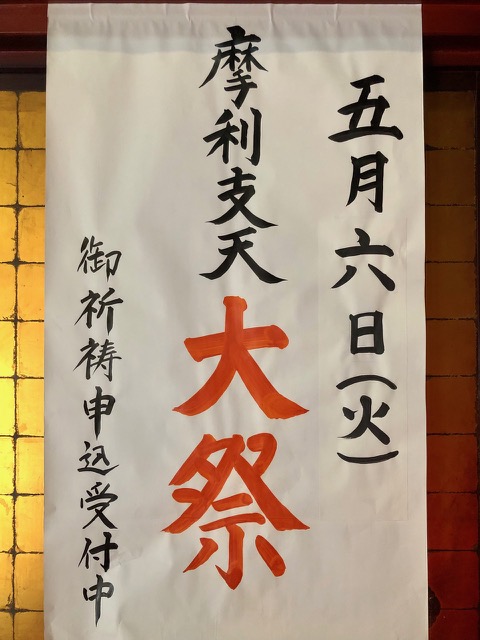 五月六日(火)
摩利支天大祭
御祈祷申込受付中